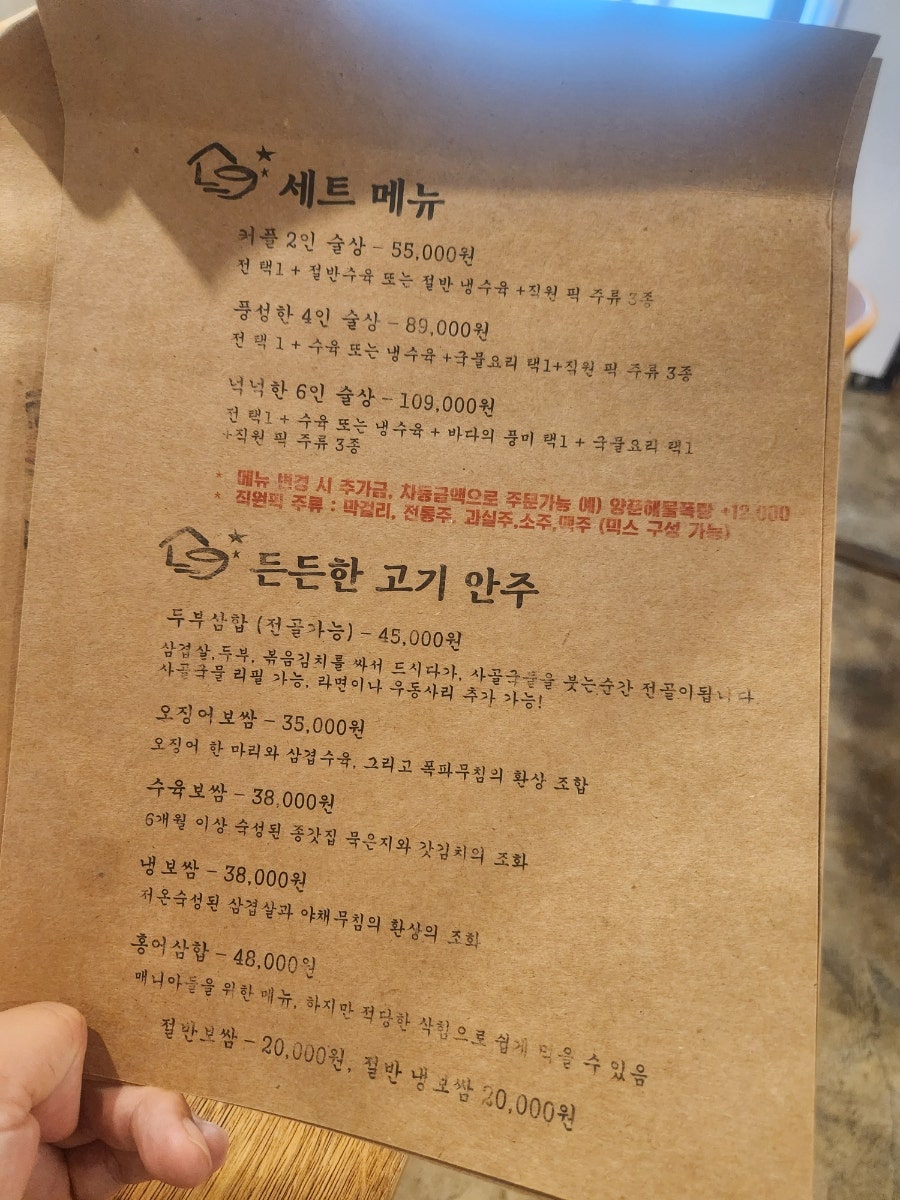 세트 메뉴
커플 2인 술상 - 55,000원
전 택1 + 절반수육 또는 절반 냉수육 +직원 픽 주류 3종
풍성한 4인 술상 - 89,000원
전 택 1 + 수육 또는 냉수육 +국물요리 택1+직원 픽 주류 3종
넉넉한 6인 술상 - 109,000원
전 택1 + 수육 또는 냉수육 + 바다의 풍미 택1 + 국물요리 택1
+직원 픽 주류 3종
* 메뉴 변경 시 추가금, 차등금액으로 주문가능 예) 양푼해물폭탕 +12,000
* 직원픽 주류 : 막걸리, 전통주, 과실주,소주,맥주 (믹스 구성 가능)
든든한 고기 안주
두부삼합 (전골가능) - 45,000원
삼겹살,두부, 볶음김치를 싸서 드시다가, 사골국물을 붓는순간 전골이됩니다.
사골국물 리필 가능, 라면이나 우동사리 추가 가능!
오징어보쌈 - 35,000원
오징어 한 마리와 삼겹수육, 그리고 쪽파무침의 환상 조합
수육보쌈 - 38,000원
6개월 이상 숙성된 종갓집 묵은지와 갓김치의 조화
냉보쌈 - 38,000원
저온숙성된 삼겹살과 야채무침의 환상의 조화
홍어삼합 - 48,000원
매니아들을 위한 메뉴, 하지만 적당한 삭힘으로 쉽게 먹을 수 있음
절반보쌈 - 20,000원, 절반 냉보쌈 20,000원